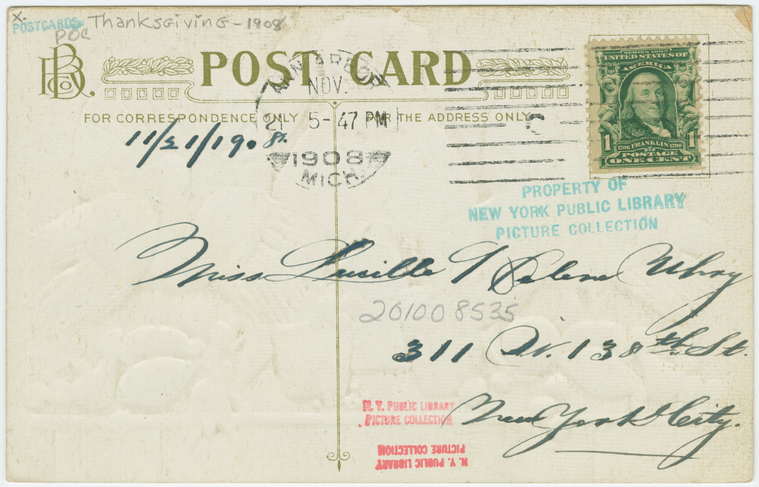 X.
POSTCARDS Thanksgiving-1908
POC
BB Co.
POST CARD
ANN ARBOR
NOV.
21 5-47 PM
1908
MICH.
FOR CORRESPONDENCE ONLY
FOR THE ADDRESS ONLY
11/21/1908.
SERIES 1902
UNITED STATES OF AMERICA
1 1706 FRANKLIN 1790 1
POSTAGE
ONE CENT
PROPERTY OF
NEW YORK PUBLIC LIBRARY
PICTURE COLLECTION
Miss Lucille
201008535
311 W. 138th St.
New York City.
N. Y. PUBLIC LIBRARY
PICTURE COLLECTION
N. Y. PUBLIC LIBRARY
PICTURE COLLECTION